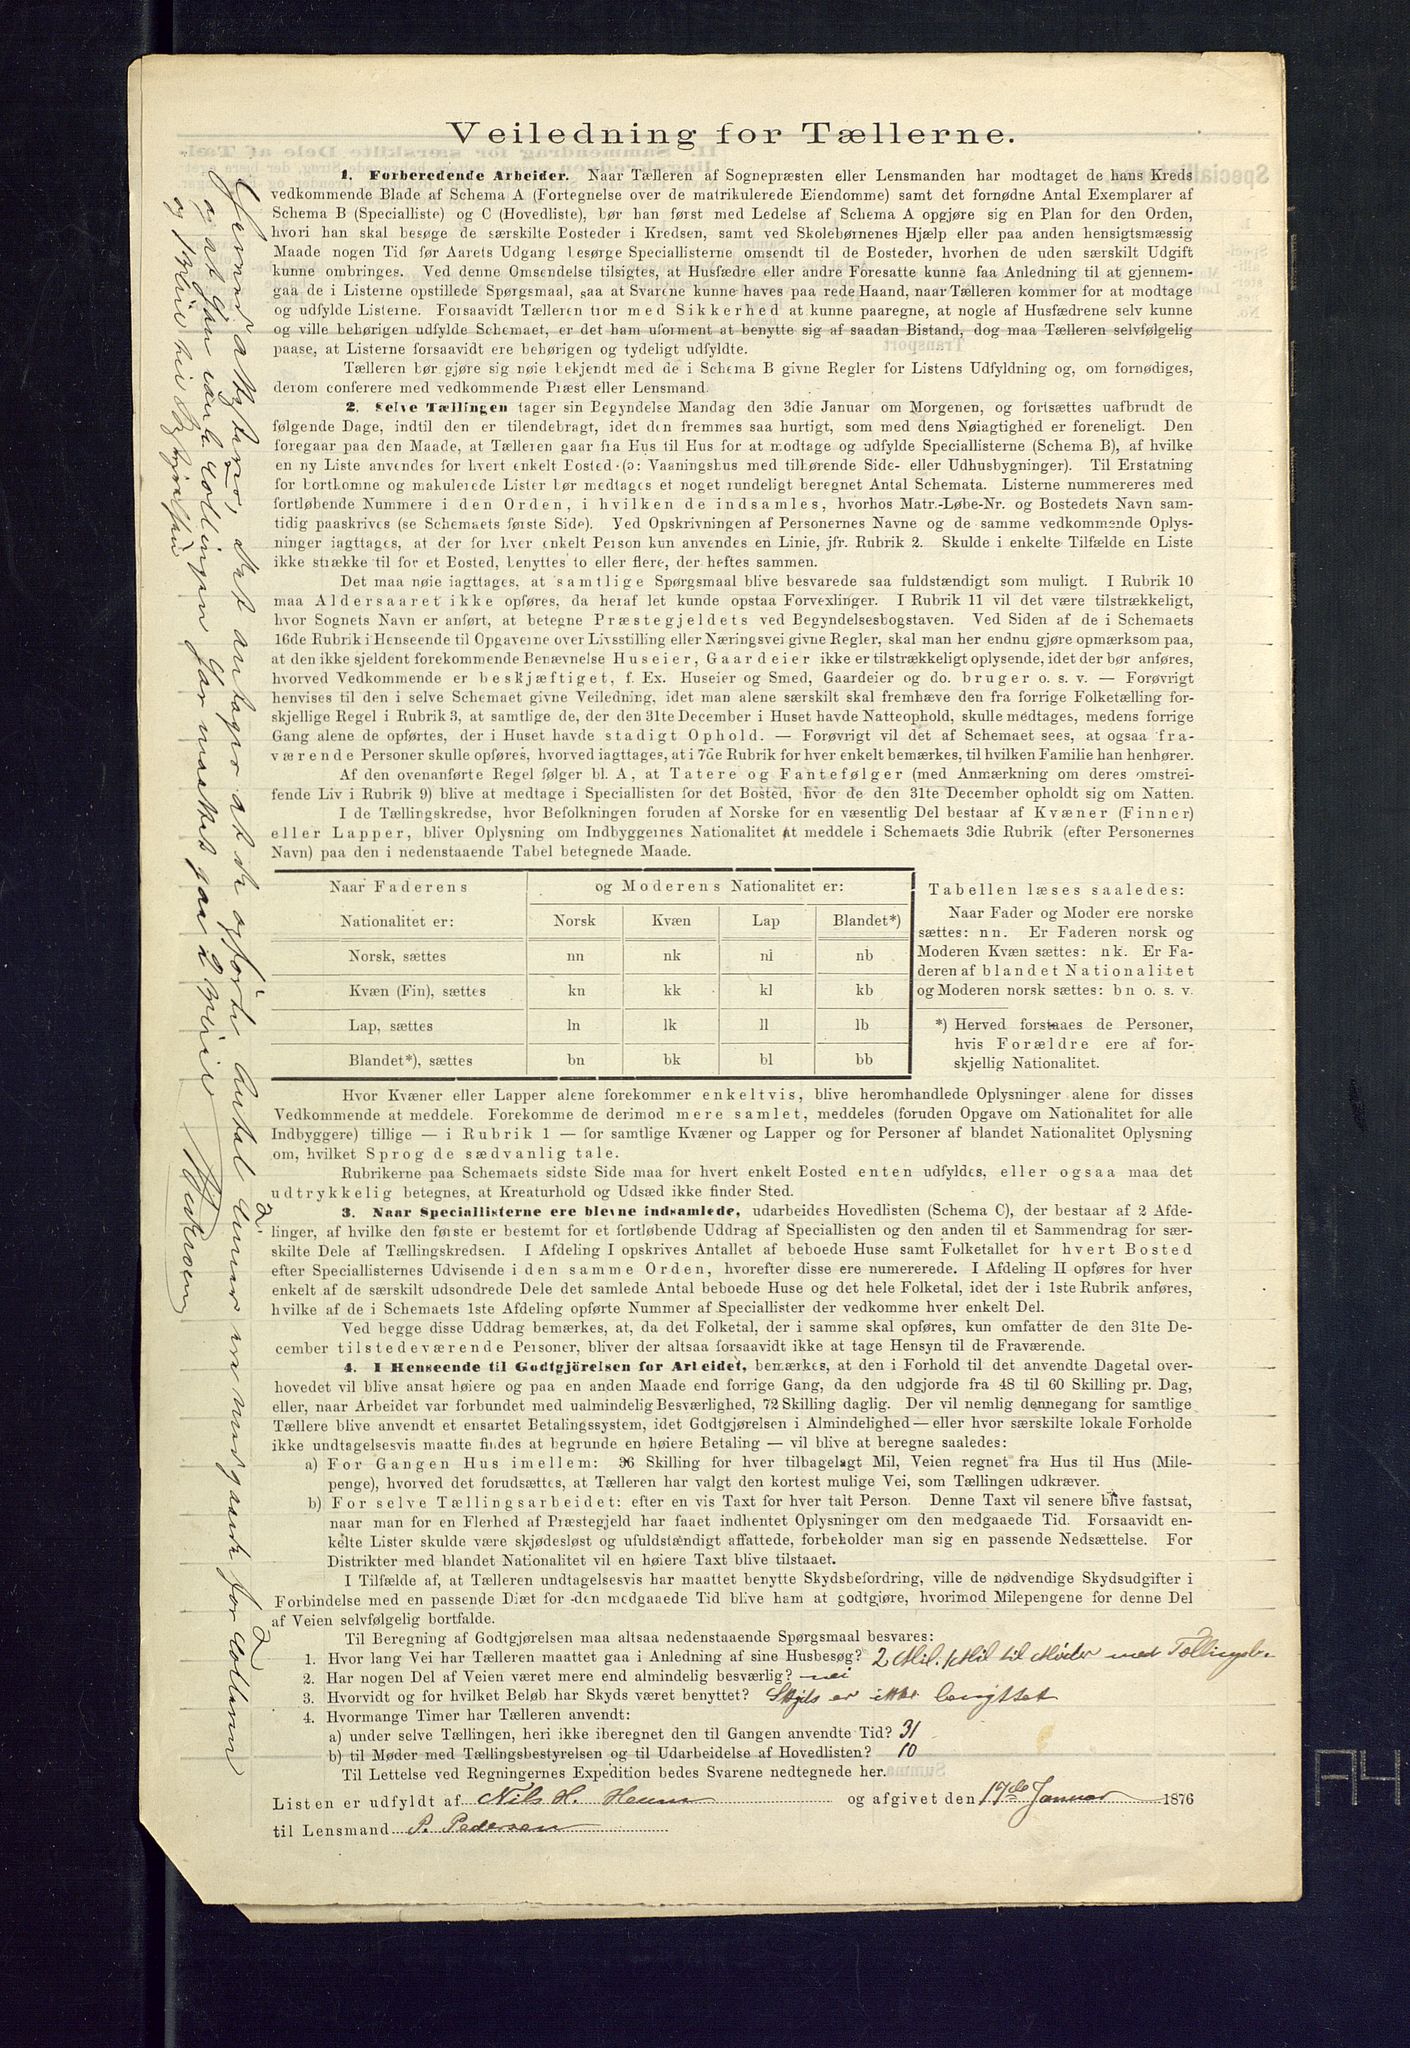 Veiledning for Tællerne.
1. Forberedende Arbeider. Naar Tælleren af Sognepræsten eller Lensmanden har modtaget de hans Kreds
vedkommende Blade af Schema A (Fortegnelse over de matrikulerede Eiendomme) samt det fornødne Antal Exemplarer af
Schema B (Specialliste) og C (Hovedliste), bør han først med Ledelse af Schema A opgjøre sig en Plan for den Orden,
hvori han skal besøge de særskilte Bosteder i Kredsen, samt ved Skolebørnenes Hjælp eller paa anden hensigtsmæssig
Maade nogen Tid før Aarets Udgang besørge Speciallisterne omsendt til de Bosteder, hvorhen de uden særskilt Udgift
kunne ombringes. Ved denne Omsendelse tilsigtes, at Husfædre eller andre Foresatte kunne faa Anledning til at gjennem-
gaa de i Listerne opstillede Spørgsmaal, saa at Svarene kunne haves paa rede Haand, naar Tælleren kommer for at modtage
og udfylde Listerne. Forsaavidt Tælleren tror med Sikkerhed at kunne paaregne, at nogle af Husfædrene selv kunne
og ville behørigen udfylde Schemaet, er det ham uforment at benytte sig af saadan Bistand, dog maa Tælleren selvfølgelig
paase, at Listerne forsaavidt ere behørigen og tydeligt udfyldte.
Tælleren bør gjøre sig nøie bekjendt med de i Schema B givne Regler for Listens Udfyldning og, om fornødiges,
derom conferere med vedkommende Præst eller Lensmand.
2. Selve Tællingen tager sin Begyndelse Mandag den 3die Januar om Morgenen, og fortsættes uafbrudt de
følgende Dage, indtil den er tilendebragt, idet den fremmes saa hurtigt, som med dens Nøiagtighed er foreneligt. Den
foregaar paa den Maade, at Tælleren gaar fra Hus til Hus for at modtage og udfylde Speciallisterne (Schema B), af hvilke
en ny Liste anvendes for hvert enkelt Bosted (ɔ: Vaaningshus med tilhørende Side- eller Udhusbygninger). Til Erstatning
for bortkomne og makulerede Lister bør medtages et noget rundeligt beregnet Antal Schemata. Listerne nummereres med
fortløbende Nummere i den Orden, i hvilken de indsamles, hvorhos Matr.-Løbe-Nr. og Bostedets Navn sam-
tidig paaskrives (se Schemaets første Side). Ved Opskrivningen af Personernes Navne og de samme vedkommende Oplys-
ninger iagttages, at der for hver enkelt Person kun anvendes en Linie, jfr. Rubrik 2. Skulde i enkelte Tilfælde en Liste
ikke strække til for et Bosted, benyttes to eller flere, der heftes sammen.
Det maa nøie iagttages, at samtlige Spørgsmaal blive besvarede saa fuldstændigt som muligt. I Rubrik 10
maa Aldersaaret ikke opføres, da heraf let kunde opstaa Forvexlinger. I Rubrik 11 vil det være tilstrækkeligt,
hvor Sognets Navn er anført, at betegne Præstegjeldets ved Begyndelsesbogstaven. Ved Siden af de i Schemaets
16de Rubrik i Henseende til Opgaverne over Livsstilling eller Næringsvei givne Regler, skal man her endnu gjøre opmærksom paa,
at den ikke sjeldent forekommende Benævnelse Huseier, Gaardeier ikke er tilstrækkeligt oplysende, idet der bør anføres,
hvorved Vedkommende er beskjæftiget, f. Ex. Huseier og Smed, Gaardeier og do. bruger o. s. v. — Forøvrigt
henvises til den i selve Schemaet givne Veiledning, idet man alene særskilt skal fremhæve den fra forrige Folketælling for-
skjellige Regel i Rubrik 3, at samtlige de, der den 31te December i Huset havde Natteophold, skulle medtages, medens forrige
Gang alene de opførtes, der i Huset havde stadigt Ophold. — Forøvrigt vil det af Schemaet sees, at ogsaa fra-
værende Personer skulle opføres, hvorved iagttages, at i 7de Rubrik for hver enkelt bemærkes, til hvilken Familie han henhører.
Af den ovenanførte Regel følger bl. A, at Tatere og Fantefølger (med Anmærkning om deres omstrei-
fende Liv i Rubrik 9) blive at medtage i Speciallisten for det Bosted, hvor de den 31te December opholdt sig om Natten.
I de Tællingskredse, hvor Befolkningen foruden af Norske for en væsentlig Del bestaar af Kvæner (Finner)
eller Lapper, bliver Oplysning om Indbyggernes Nationalitet at meddele i Schemaets 3die Rubrik (efter Personernes
Navn) paa den i nedenstaaende Tabel betegnede Maade.
Naar Faderens og Moderens Nationalitet er:
Nationalitet er: Norsk Kvæn Lap Blandet*)
Norsk, sættes nn nk nl nb
Kvæn (Fin), sættes kn kk kl kb
Lap, sættes ln lk ll lb
Blandet*), sættes bn bk bl bb
Tabellen læses saaledes:
Naar Fader og Moder ere norske
sættes: nn. Er Faderen norsk og
Moderen Kvæn sættes: nk. Er Fa-
deren af blandet Nationalitet
og Moderen norsk sættes: bn o. s. v.
*) Herved forstaaes de Personer,
hvis Forældre ere af for-
skjellig Nationalitet.
Hvor Kvæner eller Lapper alene forekommer enkeltvis, blive heromhandlede Oplysninger alene for disses
Vedkommende at meddele. Forekomme de derimod mere samlet, meddeles (foruden Opgave om Nationalitet for alle
Indbyggere) tillige — i Rubrik 1 — for samtlige Kvæner og Lapper og for Personer af blandet Nationalitet Oplysning
om, hvilket Sprog de sædvanlig tale.
Rubrikerne paa Schemaets sidste Side maa for hvert enkelt Bosted enten udfyldes, eller ogsaa maa det
udtrykkelig betegnes, at Kreaturhold og Udsæd ikke finder Sted.
3. Naar Speciallisterne ere blevne indsamlede, udarbeides Hovedlisten (Schema C), der bestaar af 2 Afde-
linger, af hvilke den første er bestemt for et fortløbende Uddrag af Speciallisten og den anden til et Sammendrag for sær-
skilte Dele af Tællingskredsen. I Afdeling I opskrives Antallet af beboede Huse samt Folketallet for hvert Bosted
efter Speciallisternes Udvisende i den samme Orden, hvorefter disse ere numererede. I Afdeling II opføres for hver
enkelt af de særskilt udsondrede Dele det samlede Antal beboede Huse og det hele Folketal, idet der i 1ste Rubrik anføres,
hvilke af de i Schemaets 1ste Afdeling opførte Nummer af Speciallister der vedkomme hver enkelt Del.
Ved begge disse Uddrag bemærkes, at, da det Folketal, der i samme skal opføres, kun omfatter de den 31te De-
cember tilstedeværende Personer, bliver der altsaa forsaavidt ikke at tage Hensyn til de Fraværende.
4. I Henseende til Godtgjörelsen for Arbeidet, bemærkes, at den i Forhold til det anvendte Dagetal over-
hovedet vil blive ansat høiere og paa en anden Maade end forrige Gang, da den udgjorde fra 48 til 60 Skilling pr. Dag,
eller, naar Arbeidet var forbundet med ualmindelig Besværlighed, 72 Skilling daglig. Der vil nemlig dennegang for samtlige
Tællere blive anvendt et ensartet Betalingssystem, idet Godtgjørelsen i Almindelighed — eller hvor særskilte lokale Forholde
ikke undtagelsesvis maatte findes at begrunde en høiere Betaling — vil blive at beregne saaledes:
a) For Gangen Hus imellem: 36 Skilling for hver tilbagelagt Mil, Veien regnet fra Hus til Hus (Mile-
penge), hvorved det forudsættes, at Tælleren har valgt den kortest mulige Vei, som Tællingen udkræver.
b) For selve Tællingsarbeidet: efter en vis Taxt for hver talt Person. Denne Taxt vil senere blive fastsat,
naar man for en Flerhed af Præstegjeld har faaet indhentet Oplysninger om den medgaaede Tid. Forsaavidt en-
kelte Lister skulde være skjødesløst og ufuldstændigt affattede, forbeholder man sig en passende Nedsættelse. For
Distrikter med blandet Nationalitet vil en høiere Taxt blive tilstaaet.
I Tilfælde af, at Tælleren undtagelsesvis har maattet benytte Skydsbefordring, ville de nødvendige Skydsudgifter i
Forbindelse med en passende Diæt for den medgaaede Tid blive ham at godtgjøre, hvorimod Milepengene for denne Del
af Veien selvfølgelig bortfalde.
Til Beregning af Godtgjørelsen maa altsaa nedenstaaende Spørgsmaal besvares:
1. Hvor lang Vei har Tælleren maattet gaa i Anledning af sine Husbesøg? 2 Mil. 1 Mil til Møder med Tællingsb.
2. Har nogen Del af Veien været mere end almindelig besværlig? nei
3. Hvorvidt og for hvilket Beløb har Skyds været benyttet? Skyds er ikke benyttet
4. Hvormange Timer har Tælleren anvendt:
a) under selve Tællingen, heri ikke iberegnet den til Gangen anvendte Tid? 31
b) til Møder med Tællingsbestyrelsen og til Udarbeidelse af Hovedlisten? 10
Til Lettelse ved Regningernes Expedition bedes Svarene nedtegnede her.
Listen er udfyldt af Nils H. Heum og afgivet den 19de Januar 1876
til Lensmand P. Pedersen
at det antages at de opførte Antal
og at han under Tællingen har maattet gaa 2